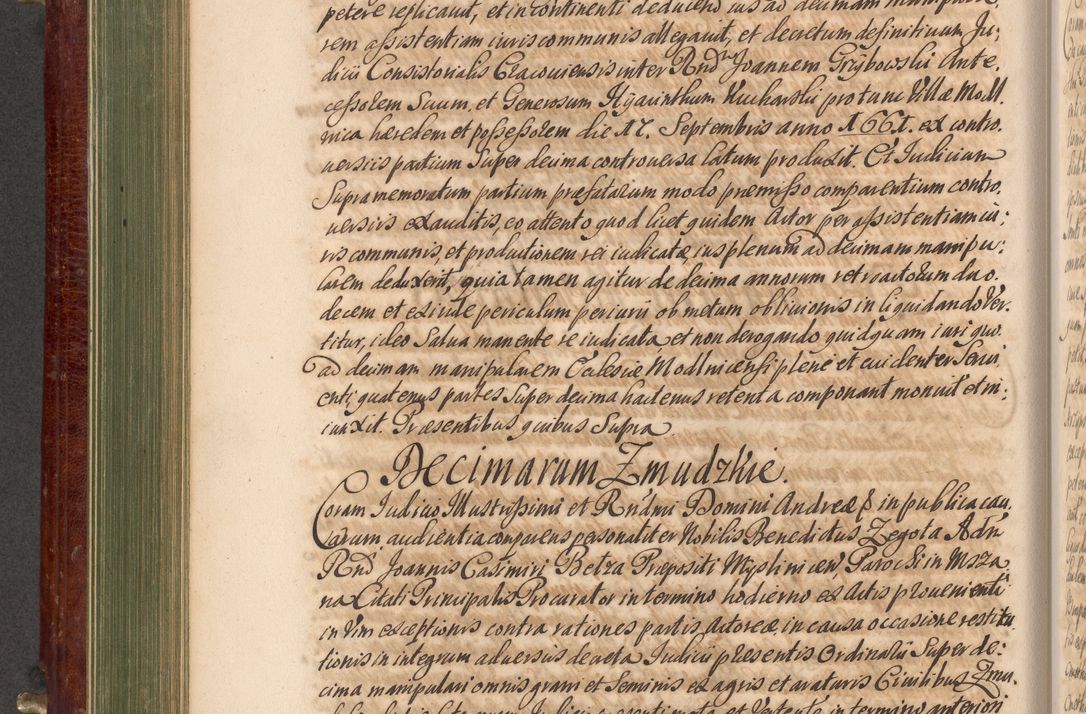 petere replicavit, et in continenti deducendo ius ad decimam manipula-
rem assistentiam iuris communis allegavit, et decretum definitivum Ju:
dicii Consistorialis Cracoviensis inter Rnd Joannem Grzybowski Ante,
cessorem Suum, et Generosum Hyacinthum Kucharski pro tunc Villæ Modl
nica hæredem et possessorem die 17. Septembris anno 1661. ex contro,
versiis partium Super decima controversa latum produxit. Et Iudicium
Supramemoratum partium præfatarum modo præmisso comparentium contro,
versiis exauditis, eo attento quod licet quidem Actor per assistentiam iu:
ris communis, et productionem rei iudicatæ ius plenum ad decimam manipu:
larem deduxerit, quia tamen agitur de decima annorum retroactorum duo,
decem et exinde periculum periurii ob metum oblivionis in liquidando Ver,
titur, ideo Salva manente re iudicata et non derogando quidquam iuri quo,
ad decimam manipularem Ecclesiæ Modlnicensi plene et evidenter Servi
enti, quatenus partes Super decima hactenus retenta componant monuit et in:
iunxit. Præsentibus quibus Supra
Decimarum Zmudzkie.
Coram Iudicio Illustrissimi et Rndmi Domini Andreæ in publica cau,
sarum audientia comparens personaliter Nobilis Benedictus Zegota Adm
Rnd Joannis Casimiri Betza Præpositi Myslinicen, Parochi in Msza
na Citati Principalis Procurator in termino hodierno ex Actis provenienti
in Vim exceptionis contra rationes partis Actoreæ in causa occasione restitu
tionis in integrum adversus decreta Iudicii præsentis Ordinarii Super de:
cima manipulari omnis grani et Seminis ex agris et araturis Civilibus Zmu,